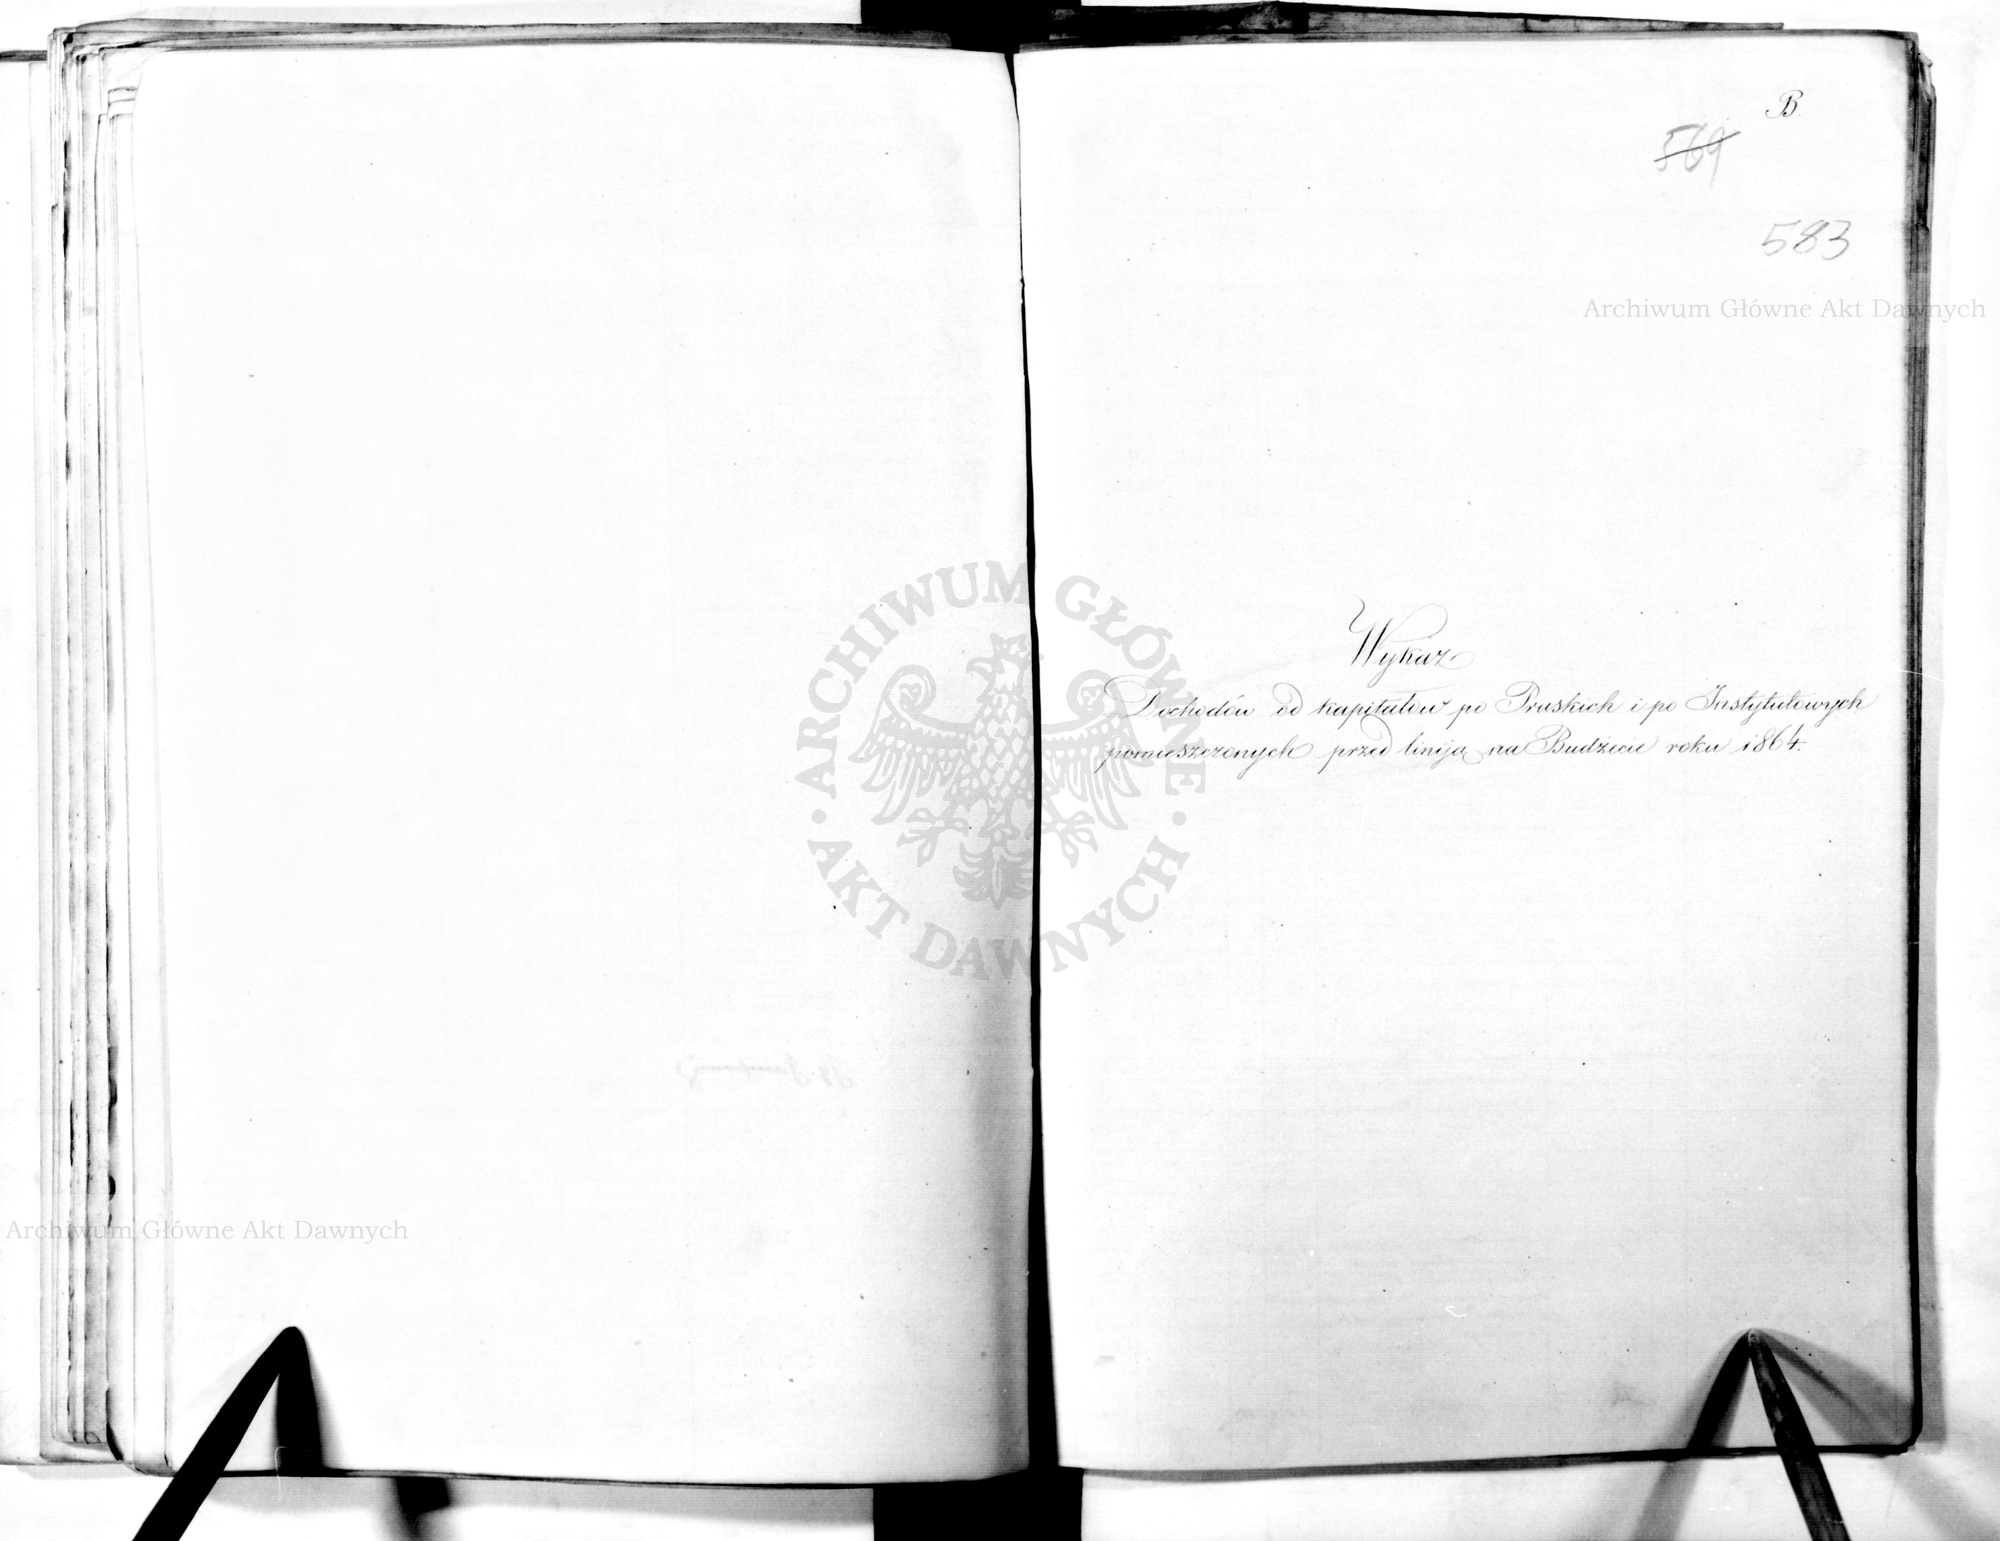 B.
569
583
Archiwum Główne Akt Dawnych
ARCHIWUM GŁÓWNE
AKT DAWNYCH
Wykaz
Dochodów od kapitałów po Pruskich i po Instytutowych
pomieszczonych przed liniją na Budżecie roku 1864.
Archiwum Główne Akt Dawnych